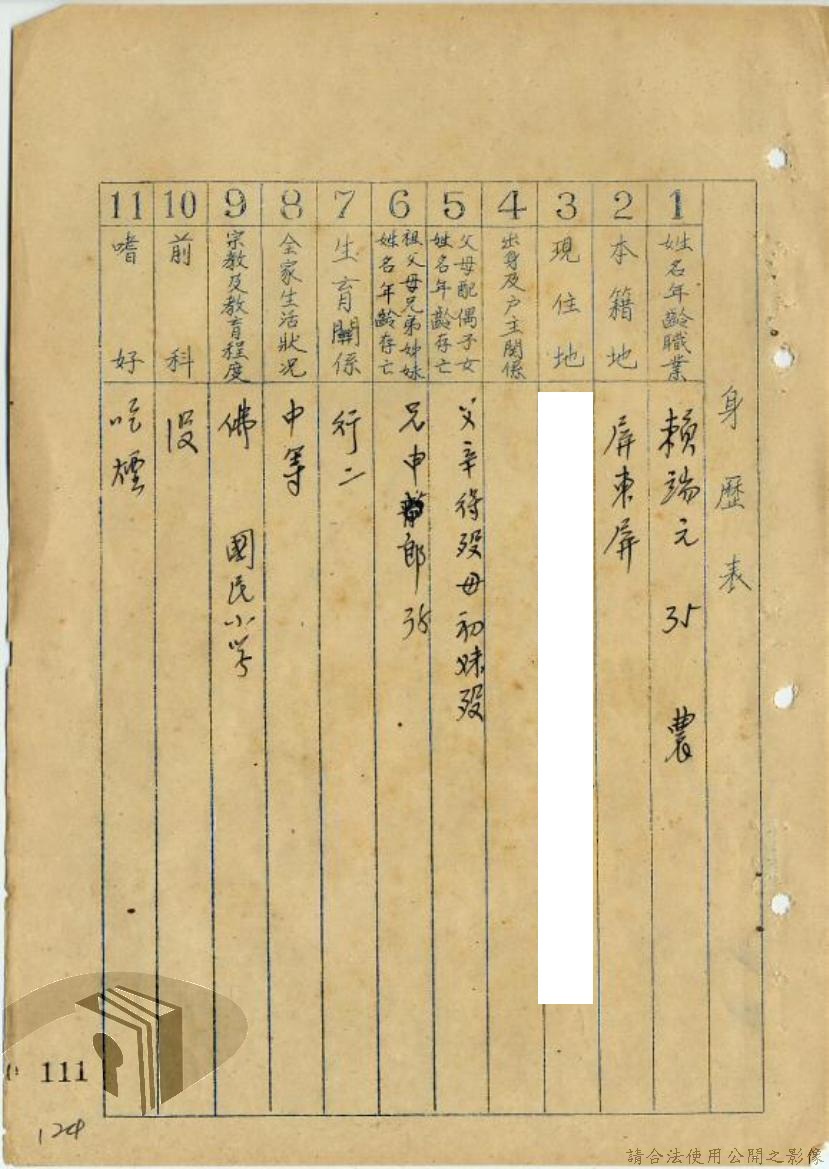 身歷表
1 姓名年齡職業 賴端元 35 農
2 本籍地 屏東屏
3 現住地
4 出身及戶主關係
5 父母配偶子女姓名年齡存亡 父辛得歿母初妹歿
6 祖父母兄弟姊妹姓名年齡存亡 兄申郎 38
7 生育關係 行二
8 全家生活狀況 中等
9 宗教及教育程度 佛 國民小学
10 前科 没
11 嗜好 吃煙
111
124
請合法使用公開之影像